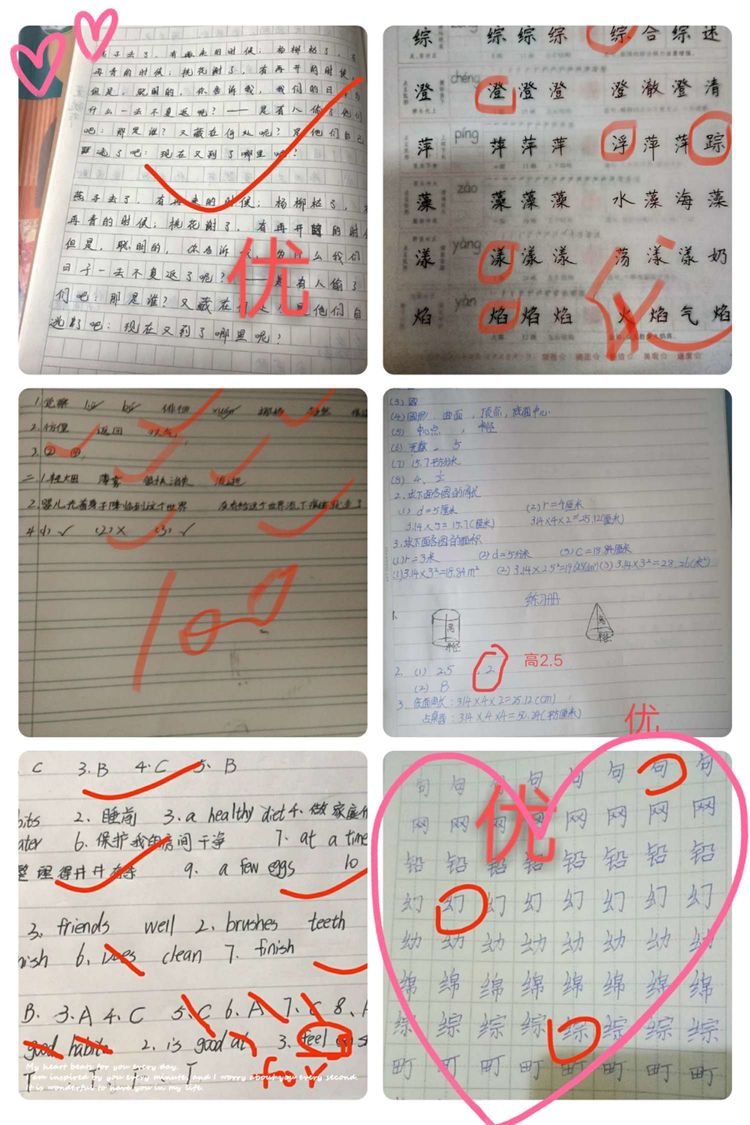 燕子去了，有再来的时候；杨柳枯了，有
再青的时候；桃花谢了，有再开的时候
但是，聪明的，你告诉我，我们的日子为
什么一去不复返呢？——是有人偷了他们
吧：那是谁？又藏在何处呢？是他们自己
逃走了吧：现在又到了哪里呢？
燕子去了，有再来的时候；杨柳枯了，
再青的时候；桃花谢了，有再开的时
但是，聪明的，你告诉
什么我们
日子一去不复返了呢？
是有人偷了
们吧：那是谁？又藏在
他们自
逃走了吧：现在又到了哪里呢？
优
综 综 综 综 综 合 综 述
chéng
澄 澄 澄 澄 澄 澈 澄 清
píng
萍 萍 萍 萍 浮 萍 萍 踪
zǎo
藻 藻 藻 藻 水 藻 海 藻
yàng
漾 漾 漾 漾 荡 漾 漾 奶
yàn
焰 焰 焰 焰 火 焰 气 焰
1.觉察 徘徊
2.仿佛 返回
3.② ④
二.1.轻烟 薄雾
4.(1)✓ (2)× (3)✓
100
(3) 圆
(4) 圆形 曲面 顶点 底面中心
(6) 无数 5
(8) 4
2.求下面各圆的周长
(1) d=5厘米 (2) r=4厘米
3.14×5=15.7(厘米) 3.14×4×2=25.12(厘米)
3.求下面各圆的面积
(1) r=3米 (2) d=5分米 (3) C=18.84厘米
练习册
1.
高
高
2. (1) 2.5 2
高2.5
(2) 8
3. 底面周长：3.14×4×2=25.12(cm)
占地面：3.14×4×4=50.24(平方厘米)
优
C 3.B 4.C 5.B
bits 2.睡前 3.a healthy diet 4.做家庭作
ater 6.保护我的房间干净 7.at a time
整理得井井有条 9. a few eggs 10
3. friends well 2. brushes teeth
nish 6. uses clean 7. finish
B. 3.A 4.C 5.C 6.A 7.C 8.A
good habits 2. is good at 3. feel
for
My heart beats for you every day.
I am inspired by you every minute, and I worry about you every second.
It is wonderful to have you in my life.
优
句 句 句 句 句 句 句 句
网 网 网 网 网 网 网
铅 铅 铅 铅 铅 铅 铅 铅
幻 幻 幻 幻 幻 幻 幻 幻
幼 幼 幼 幼 幼 幼 幼 幼
绵 绵 绵 绵 绵 绵 绵 绵
综 综 综 综 综 综 综 综
町 町 町 町 町 町 町 町